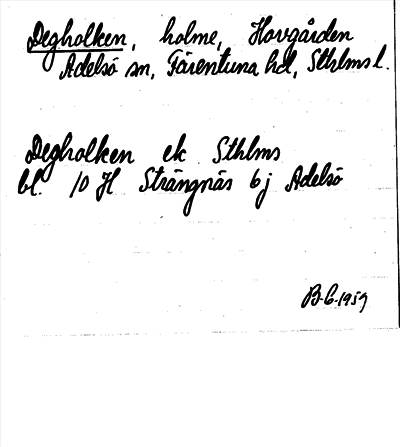 Degholken, holme, Hovgården
Adelsö sn, Färentuna hd, Sthlms l.
Degholken ek Sthlms
bl. 10 H Strängnäs 6j Adelsö
B.G. 1959